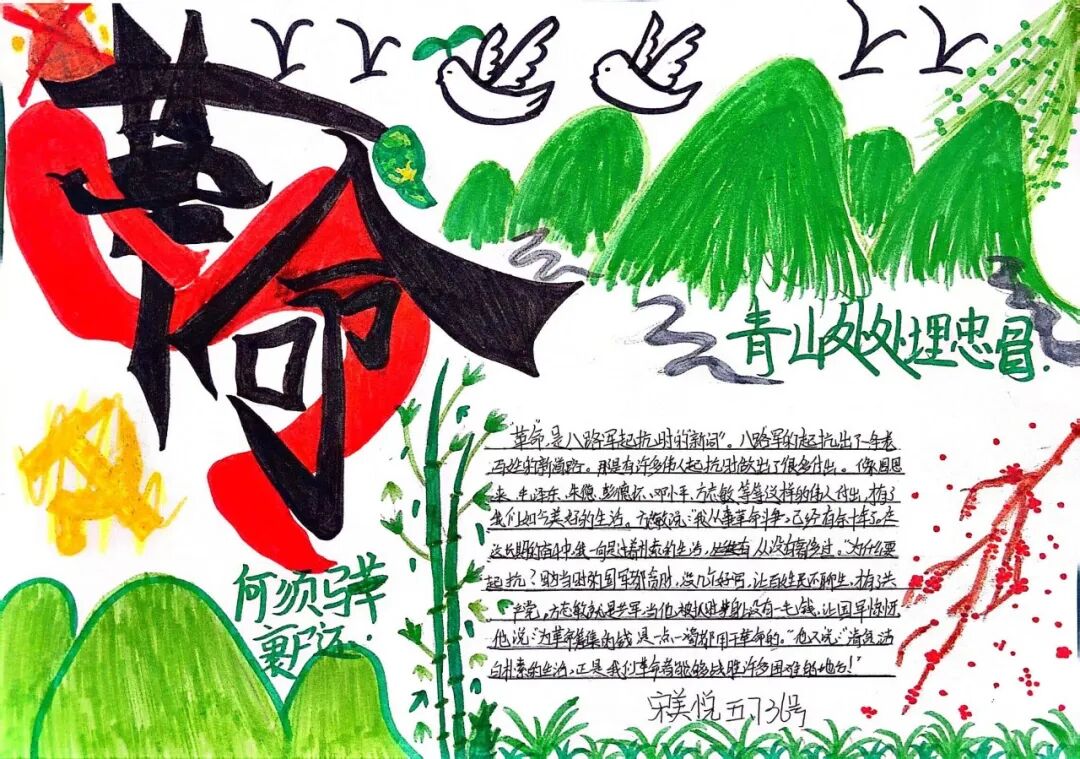 革命
青山处处埋忠骨.
何须马革
裹尸还.
"革命"是八路军起抗时的"新词"。八路军的起抗出了一条老
百姓的新道路。那是有许多伟人起抗时做出了很多付出。像周恩
来、毛泽东、朱德、彭德怀、邓小平、方志敏等等这样的伟人付出，才有了
我们如今美好的生活。方志敏说："我从事革命斗争，已经有余十年了。在
这长期的奋斗中，我一向是过着朴素的生活，从没有奢侈过。"为什么要
起抗？因为当时的国军都贪财，没几个好官，让百姓民不聊生，才有了共
产党，方志敏就是共军，当他被认时身上没有一毛钱，让国军惊讶
他说："为革命筹集的钱是一点一滴都用于革命的。"他又说："清贫，洁
白朴素的生活，正是我们革命者能够战胜许多困难的地方！"
宋美悦 五7 36号